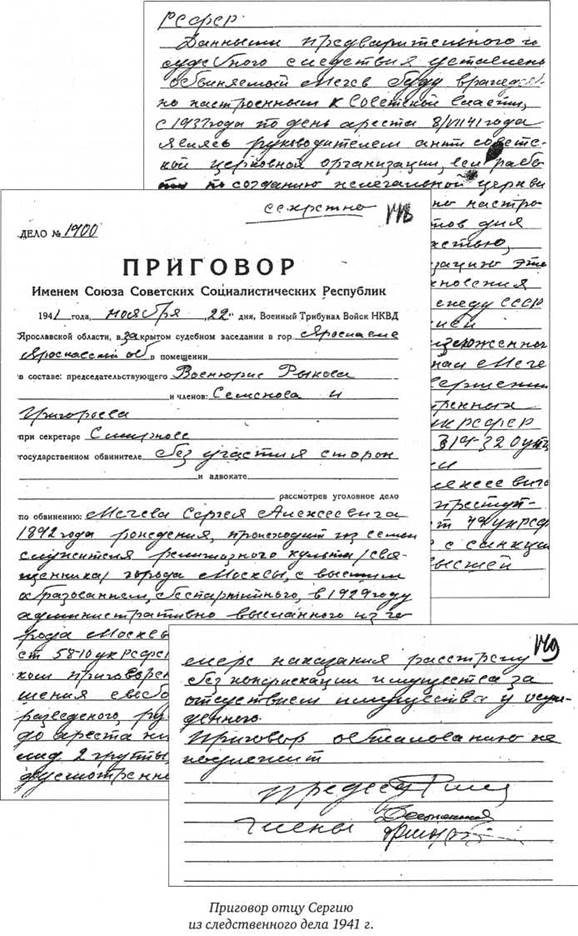 РСФСР.
Данными предварительного и
судебного следствия установлено
обвиняемый Мечев будучи враждеб-
но настроенным к Советской власти,
с 1937 года по день ареста 8/VII 41 года
являясь руководителем антисоветс-
кой церковной организации, вел рабо-
ту по созданию нелегальной церкви
но настро-
тов для
властью,
зацию эти
между СССР
изложенного
РСФСР
319-320 УПК
Алексеевича
преступ-
УК РСФ
с санкции
высшей
секретно
ДЕЛО № 1900
ПРИГОВОР
Именем Союза Советских Социалистических Республик
1941 года, ноября „22“ дня, Военный Трибунал Войск НКВД
Ярославской области, в закрытом судебном заседании в гор. Ярославле
Ярославской об в помещении
в составе: председательствующего Военюриста Рыкова
и членов: Семенова и
Григорьева
при секретаре Смирнове
государственном обвинителе без участия сторон
и адвокате
рассмотрев уголовное дело
по обвинению: Мечева Сергея Алексеевича
1892 года рождения, происходит из семьи
служителя религиозного культа /свя-
щенника/ города Москвы, с высшим
образованием, беспартийного, в 1929 году
административно высланного из го
рода Москвы
ст 58-10 УК РСФСР
ком приговоре
шения свобо
разведеного,
до ареста
2 группы
дусмотренно
149
мере наказания расстрелу
без конфискации имущества за
отсутствием имущества у осуж-
денного.
Приговор обжалованию не
подлежит
Председ
Члены
Приговор отцу Сергию
из следственного дела 1941 г.